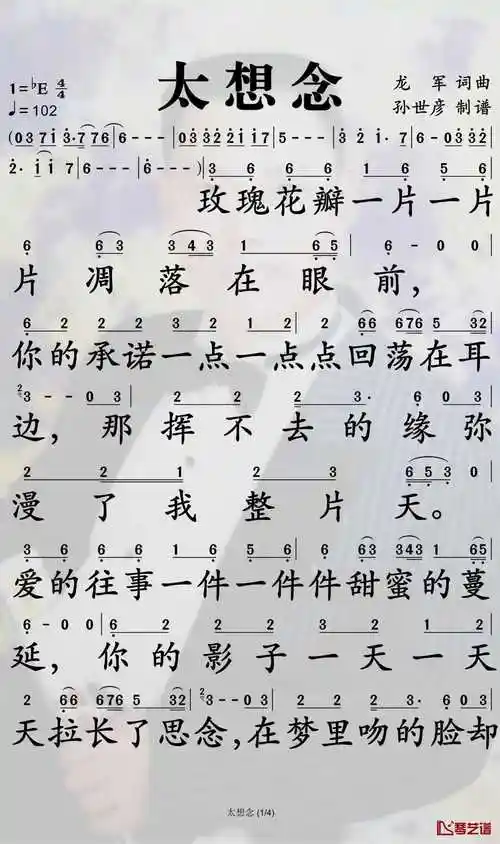 太想念
1=♭E 4/4
♩=102
龙 军 词曲
孙世彦 制谱
(0371̇3̇·7̇76 | 6--- | 03̇3̇2̇2̇1̇1̇7 | 5--- | 3 2̇ 1̇·7 | 6--0 | 03̇3̇2̇
2̇·1̇1̇7 | 6--- | 6---) | 3 6 6 6 | 1 6 5 6
玫瑰花瓣一片一片
6 63 | 3 43 1 65 | 6--0 | 0 0 3
片凋落在眼前，
6 2 2 2 | 3 2 1 2 | 2 66 676 5 32
你的承诺一点一点点回荡在耳
3--03 | 2 2 2 2 | 2 3· 603
边，那挥不去的缘弥
2 2 1 2 3 | 653 · 0
漫了我整片天。
3 6 6 6 | 1 6 5 6 | 6 63 343 1 65
爱的往事一件一件件甜蜜的蔓
6-00 | 6 2 2 2 | 3 2 1 2
延，你的影子一天一天
2 66 676 5 32 | 3·003 | 2 2 2 2 | 2 3· 603
天拉长了思念，在梦里吻的脸却
太想念 (1/4)
琴艺谱